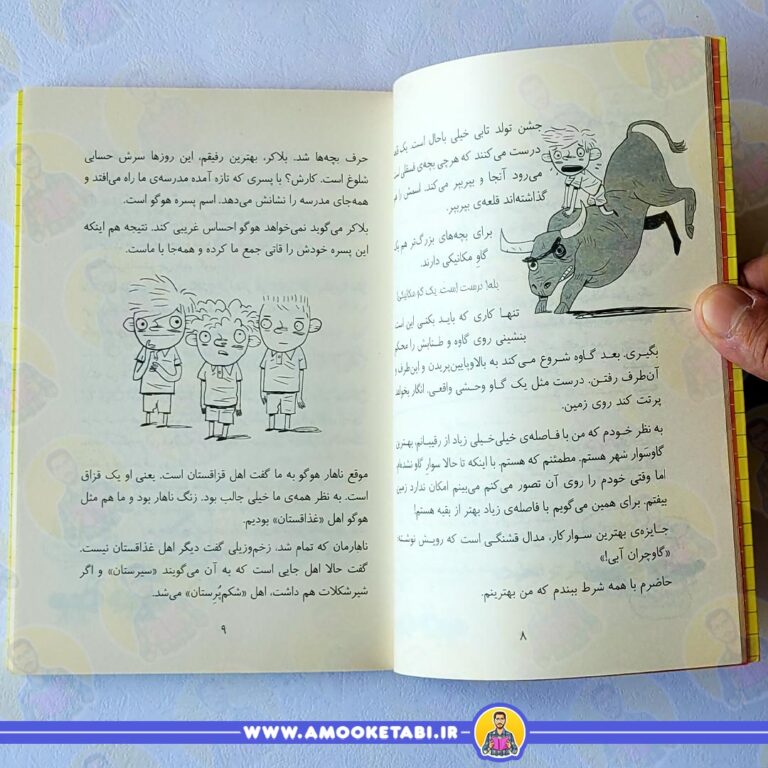 جشن تولد تابی خیلی باحال است. یک
درست می‌کنند که هرچی بچه‌ی فسقلی
می‌رود آنجا و بپربپر می‌کند. اسمش را
گذاشته‌اند قلعه‌ی بپربپر.
برای بچه‌های بزرگ‌تر هم یک
گاو مکانیکی دارند.
بله! درست است. یک گاو مکانیکی!
تنها کاری که باید بکنی این است
بنشینی روی گاوه و طنابش را محکم
بگیری. بعد گاوه شروع می‌کند به بالاوپایین‌پریدن و این‌طرف و
آن‌طرف رفتن. درست مثل یک گاو وحشی واقعی. انگار بخواهد
پرتت کند روی زمین.
به نظر خودم که من با فاصله‌ی خیلی‌خیلی زیاد از رقیبانم، بهترین
گاوسوار شهر هستم. مطمئنم که هستم. با اینکه تا حالا سوار گاو نشده‌ام
اما وقتی خودم را روی آن تصور می‌کنم می‌بینم امکان ندارد زمین
بیفتم. برای همین می‌گویم با فاصله‌ی زیاد بهتر از بقیه هستم!
جایزه‌ی بهترین سوارکار، مدال قشنگی است که رویش نوشته:
«گاوچران آبی!»
حاضرم با همه شرط ببندم که من بهترینم.
۸
حرف بچه‌ها شد. بلاکر، بهترین رفیقم، این روزها سرش حسابی
شلوغ است. کارش؟ با پسری که تازه آمده مدرسه‌ی ما راه می‌افتد و
همه‌جای مدرسه را نشانش می‌دهد. اسم پسره هوگو است.
بلاکر می‌گوید نمی‌خواهد هوگو احساس غریبی کند. نتیجه هم اینکه
این پسره خودش را قاتی جمع ما کرده و همه‌جا با ماست.
موقع ناهار هوگو به ما گفت اهل قزاقستان است. یعنی او یک قزاق
است. به نظر همه‌ی ما خیلی جالب بود. زنگ ناهار بود و ما هم مثل
هوگو اهل «غذاقستان» بودیم.
ناهارمان که تمام شد، زخم‌وزیلی گفت دیگر اهل غذاقستان نیست.
گفت حالا اهل جایی است که به آن می‌گویند «سیرستان» و اگر
شیرشکلات هم داشت، اهل «شکم‌پُرستان» می‌شد.
۹
WWW.AMOOKETABI.IR